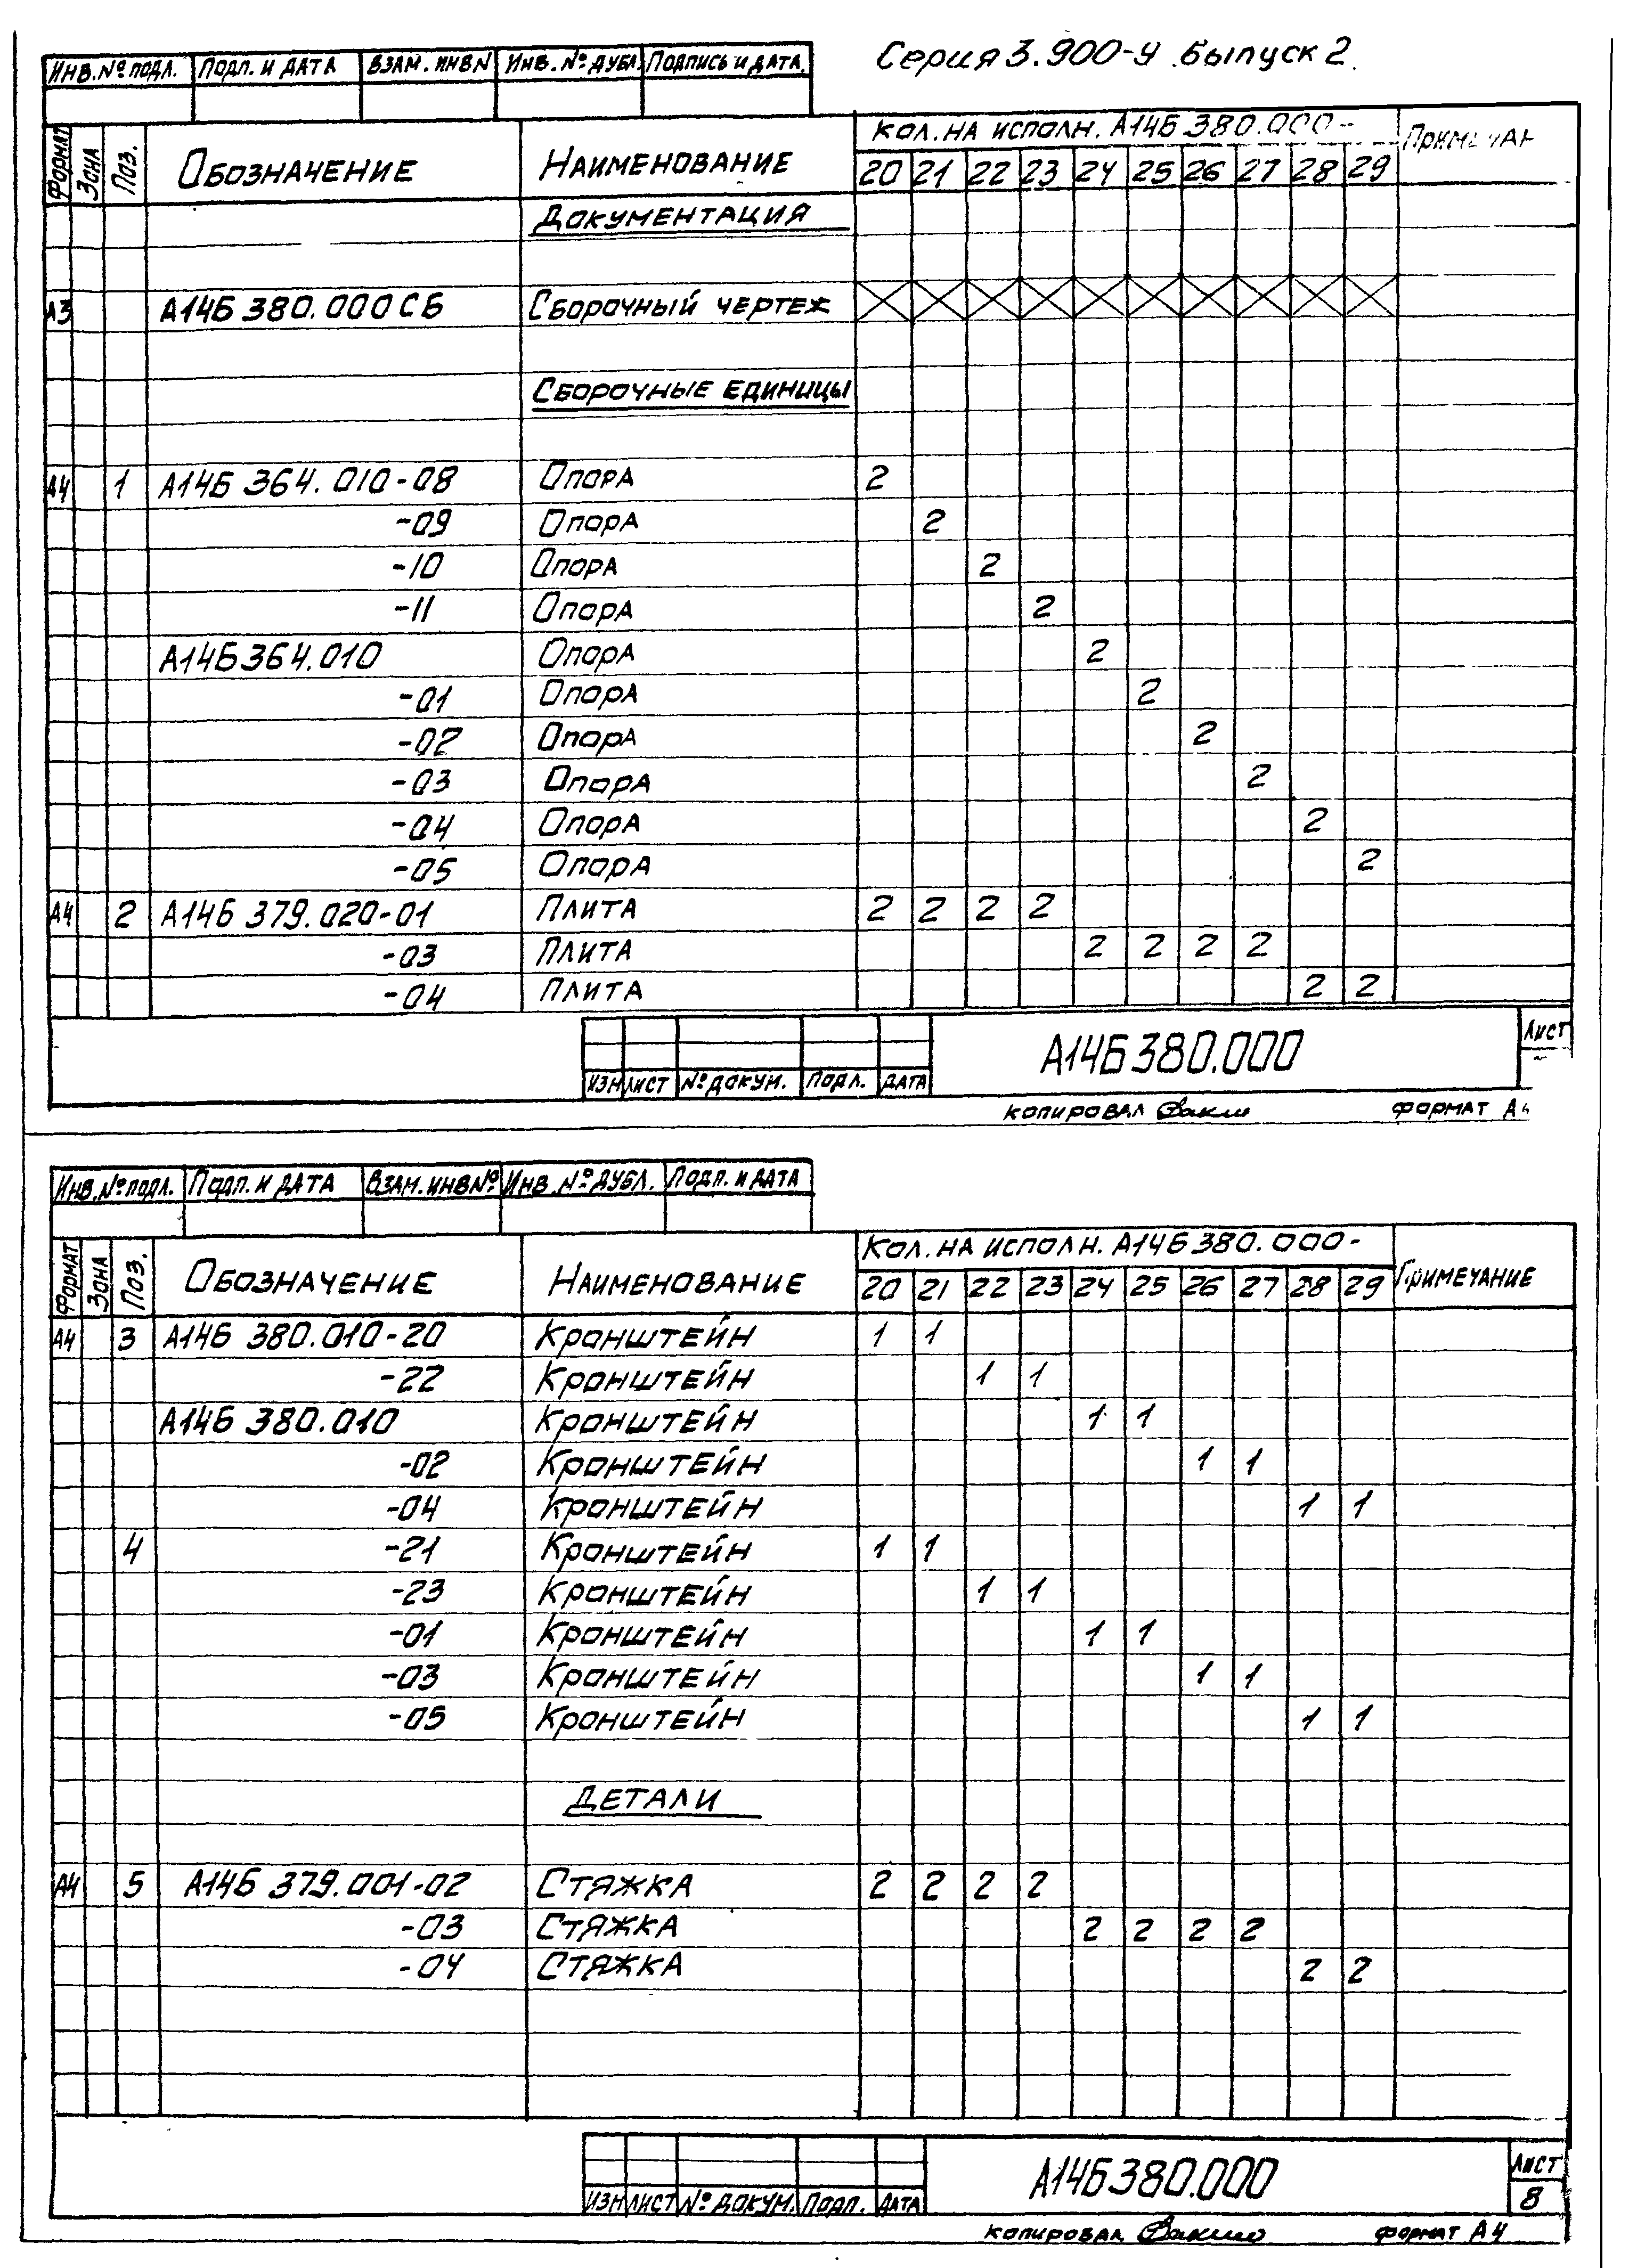 Серия 3.900-9 Выпуск 2.
Инв.№ подл. Подп. и дата Взам. инв N Инв.№ дубл. Подпись и дата
Формат Зона Поз. Обозначение Наименование Кол. на исполн. А14Б 380.000-
20 21 22 23 24 25 26 27 28 29
Документация
А3 А14Б 380.000 СБ Сборочный чертеж
Сборочные единицы
А4 1 А14Б 364.010-08 Опора 2
-09 Опора 2
-10 Опора 2
-11 Опора 2
А14Б 364.010 Опора 2
-01 Опора 2
-02 Опора 2
-03 Опора 2
-04 Опора 2
-05 Опора 2
А4 2 А14Б 379.020-01 Плита 2 2 2 2
-03 Плита 2 2 2 2
-04 Плита 2 2
А14Б 380.000 Лист
Изм Лист № докум. Подп. Дата
Копировал Формат А4
Инв.№ подл. Подп. и дата Взам. инв № Инв.№ дубл. Подп. и дата
Формат Зона Поз. Обозначение Наименование Кол. на исполн. А14Б 380.000- Примечание
20 21 22 23 24 25 26 27 28 29
А4 3 А14Б 380.010-20 Кронштейн 1 1
-22 Кронштейн 1 1
А14Б 380.010 Кронштейн 1 1
-02 Кронштейн 1 1
-04 Кронштейн 1 1
4 -21 Кронштейн 1 1
-23 Кронштейн 1 1
-01 Кронштейн 1 1
-03 Кронштейн 1 1
-05 Кронштейн 1 1
Детали
А4 5 А14Б 379.001-02 Стяжка 2 2 2 2
-03 Стяжка 2 2 2 2
-04 Стяжка 2 2
А14Б 380.000 Лист
8
Изм Лист № докум. Подп. Дата
Копировал Формат А4